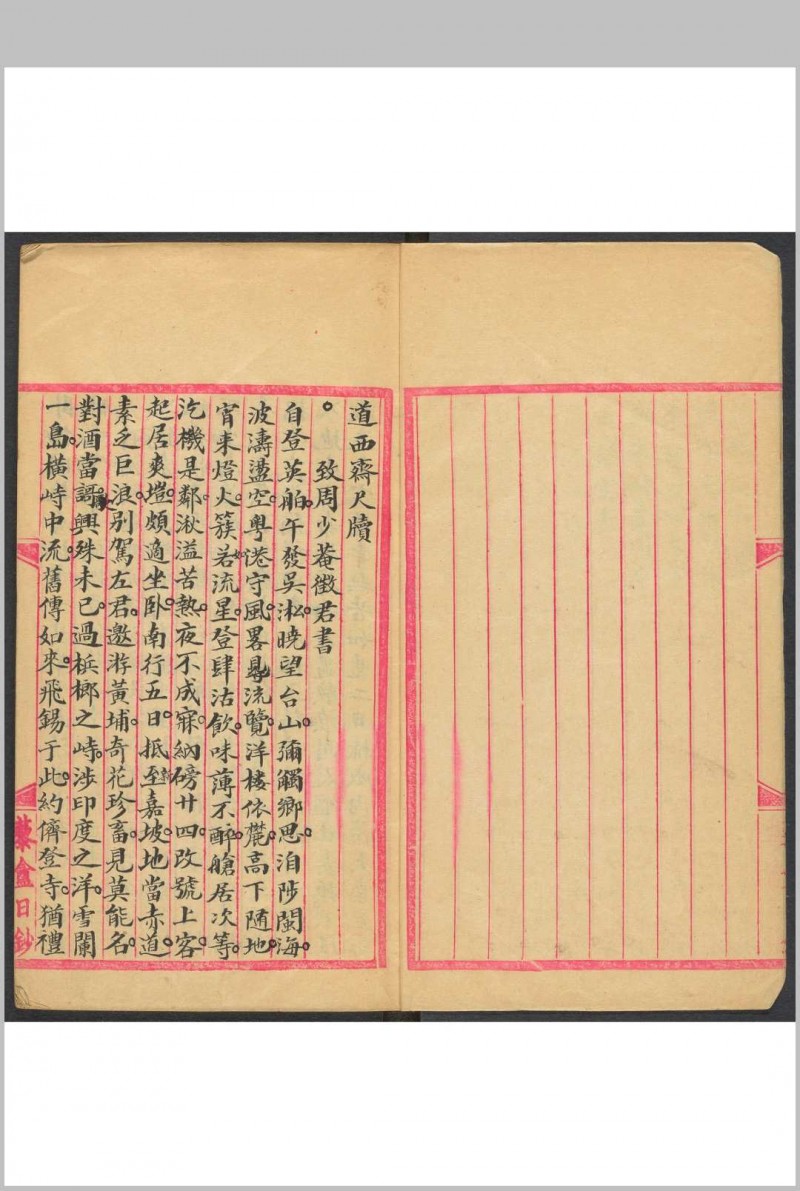 道西齋尺牘
致周少菴徵君書
自登英舶。午發吳淞。曉望台山。彌觸鄉思。洎陟閩海。
波濤盪空。粵港守風。畧尋流覽。洋樓依麓。高下隨地。
宵来燈火。簇若流星。登肆沽飲。味薄不醉。艙居次等。
汽機是鄰。湫溢苦熱。夜不成寐。納磅廿四。改號上客。
起居爽塏。頗適坐卧。南行五日。抵新嘉坡。地當赤道。
素乏巨浪。別駕左君。邀游黃埔。奇花珍畜。見莫能名。
對酒當歌。豪興殊未已。過梹榔之峙。涉印度之洋。雪闌
一島。橫峙中流。舊傳如來。飛錫于此。約儕登寺。猶禮
藜盦日鈔